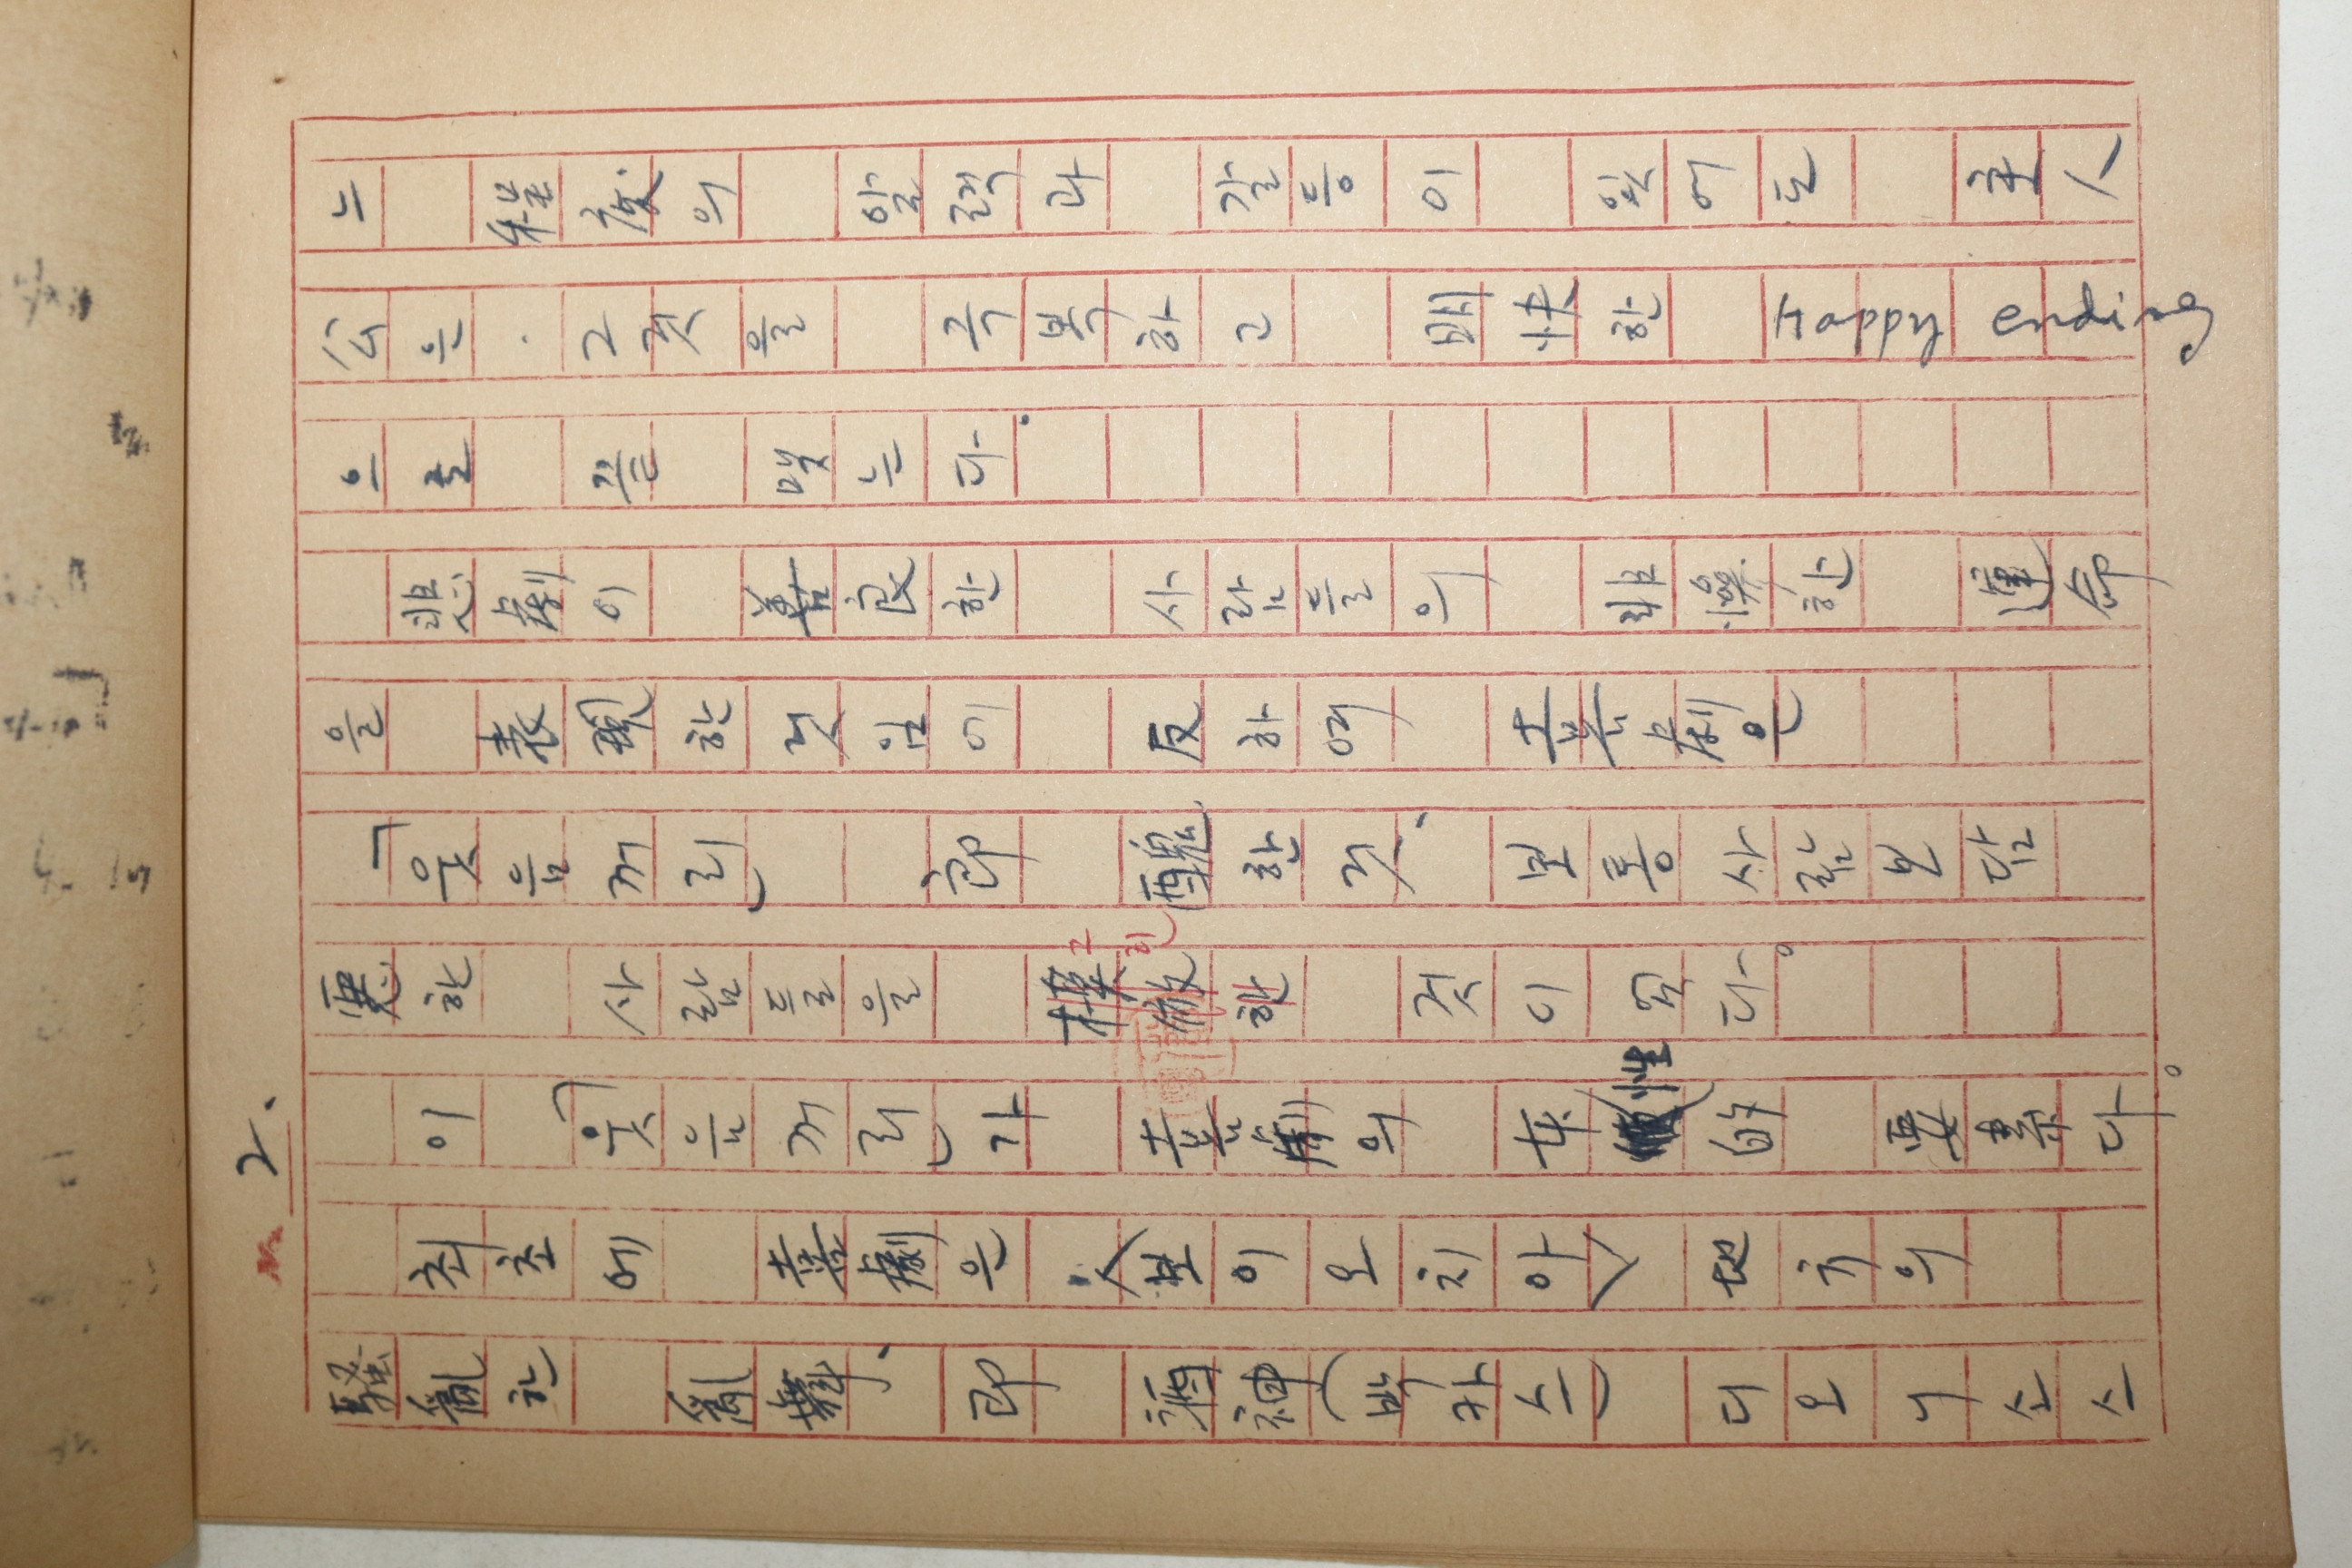 2.
느 程度의 알력과 갈등이 잇어도 主人
公은 · 그것을 극복하고 明快한 happy ending
으로 끝 맺는다.
悲劇이 善良한 사람들의 悲慘한 運命
을 表現한 것임에 反하여 喜劇은
「웃음꺼리」 即 醜한 것、보통 사람보담
惡한 사람들을 模倣한 것이요다。
그린
이 「웃음꺼리」가 喜劇의 本性的 要素다。
최초에 喜劇은 <보이오치아> 地方의
騷亂한 亂舞、即 酒神(박카스) 디오니소스